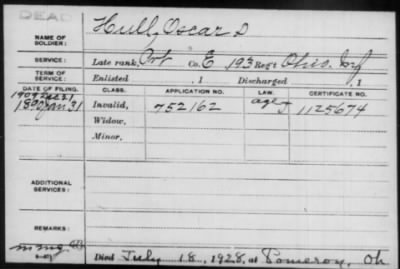 DEAD
NAME OF SOLDIER: Hull, Oscar D
SERVICE: Late rank, Pvt Co. E, 193 Reg't Ohio. Inf
TERM OF SERVICE: Enlisted , 1 Discharged , 1
DATE OF FILING. CLASS. APPLICATION NO. LAW. CERTIFICATE NO.
1890 Jan 31 Invalid, 752162 1125674
Widow,
Minor,
ADDITIONAL SERVICES:
REMARKS:
Died July 18, 1928, at Pomeroy, Oh